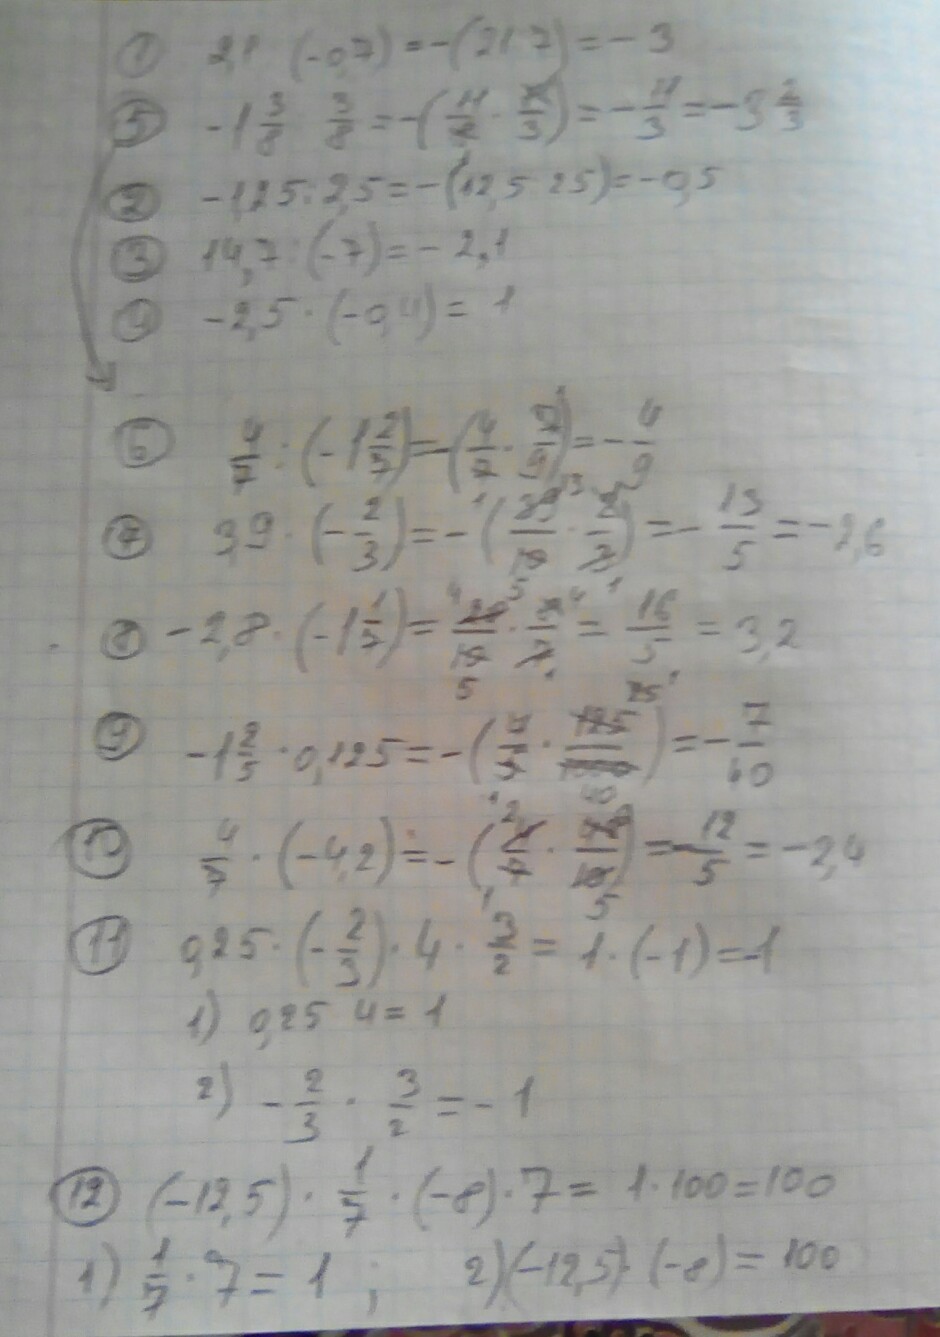 ① 2,1 (-0,7) = -(21 7) = -3
⑤ -1 3/8 3/8 = -(11/8 · 8/3) = -11/3 = -3 2/3
② -1,25 : 2,5 = -(12,5 25) = -0,5
③ 14,7 : (-7) = -2,1
-2,5 · (-0,4) = 1
⑥ 4/7 : (-1 2/7) = -(4/7 · 7/9) = -4/9
⑦ 3,9 · (-2/3) = -(39/10 · 2/3) = -13/5 = -2,6
⑧ -2,8 · (-1 1/7) = 28/10 · 8/7 = 16/5 = 3,2
⑨ -1 2/5 · 0,125 = -(7/5 · 125/1000) = -7/40
⑩ 4/7 · (-4,2) = -(4/7 · 42/10) = -12/5 = -2,4
⑪ 0,25 · (-2/3) · 4 · 3/2 = 1 · (-1) = -1
1) 0,25 4 = 1
2) -2/3 · 3/2 = -1
⑫ (-12,5) · 1/7 · (-8) · 7 = 1 · 100 = 100
1) 1/7 · 7 = 1 ; 2) (-12,5) · (-8) = 100